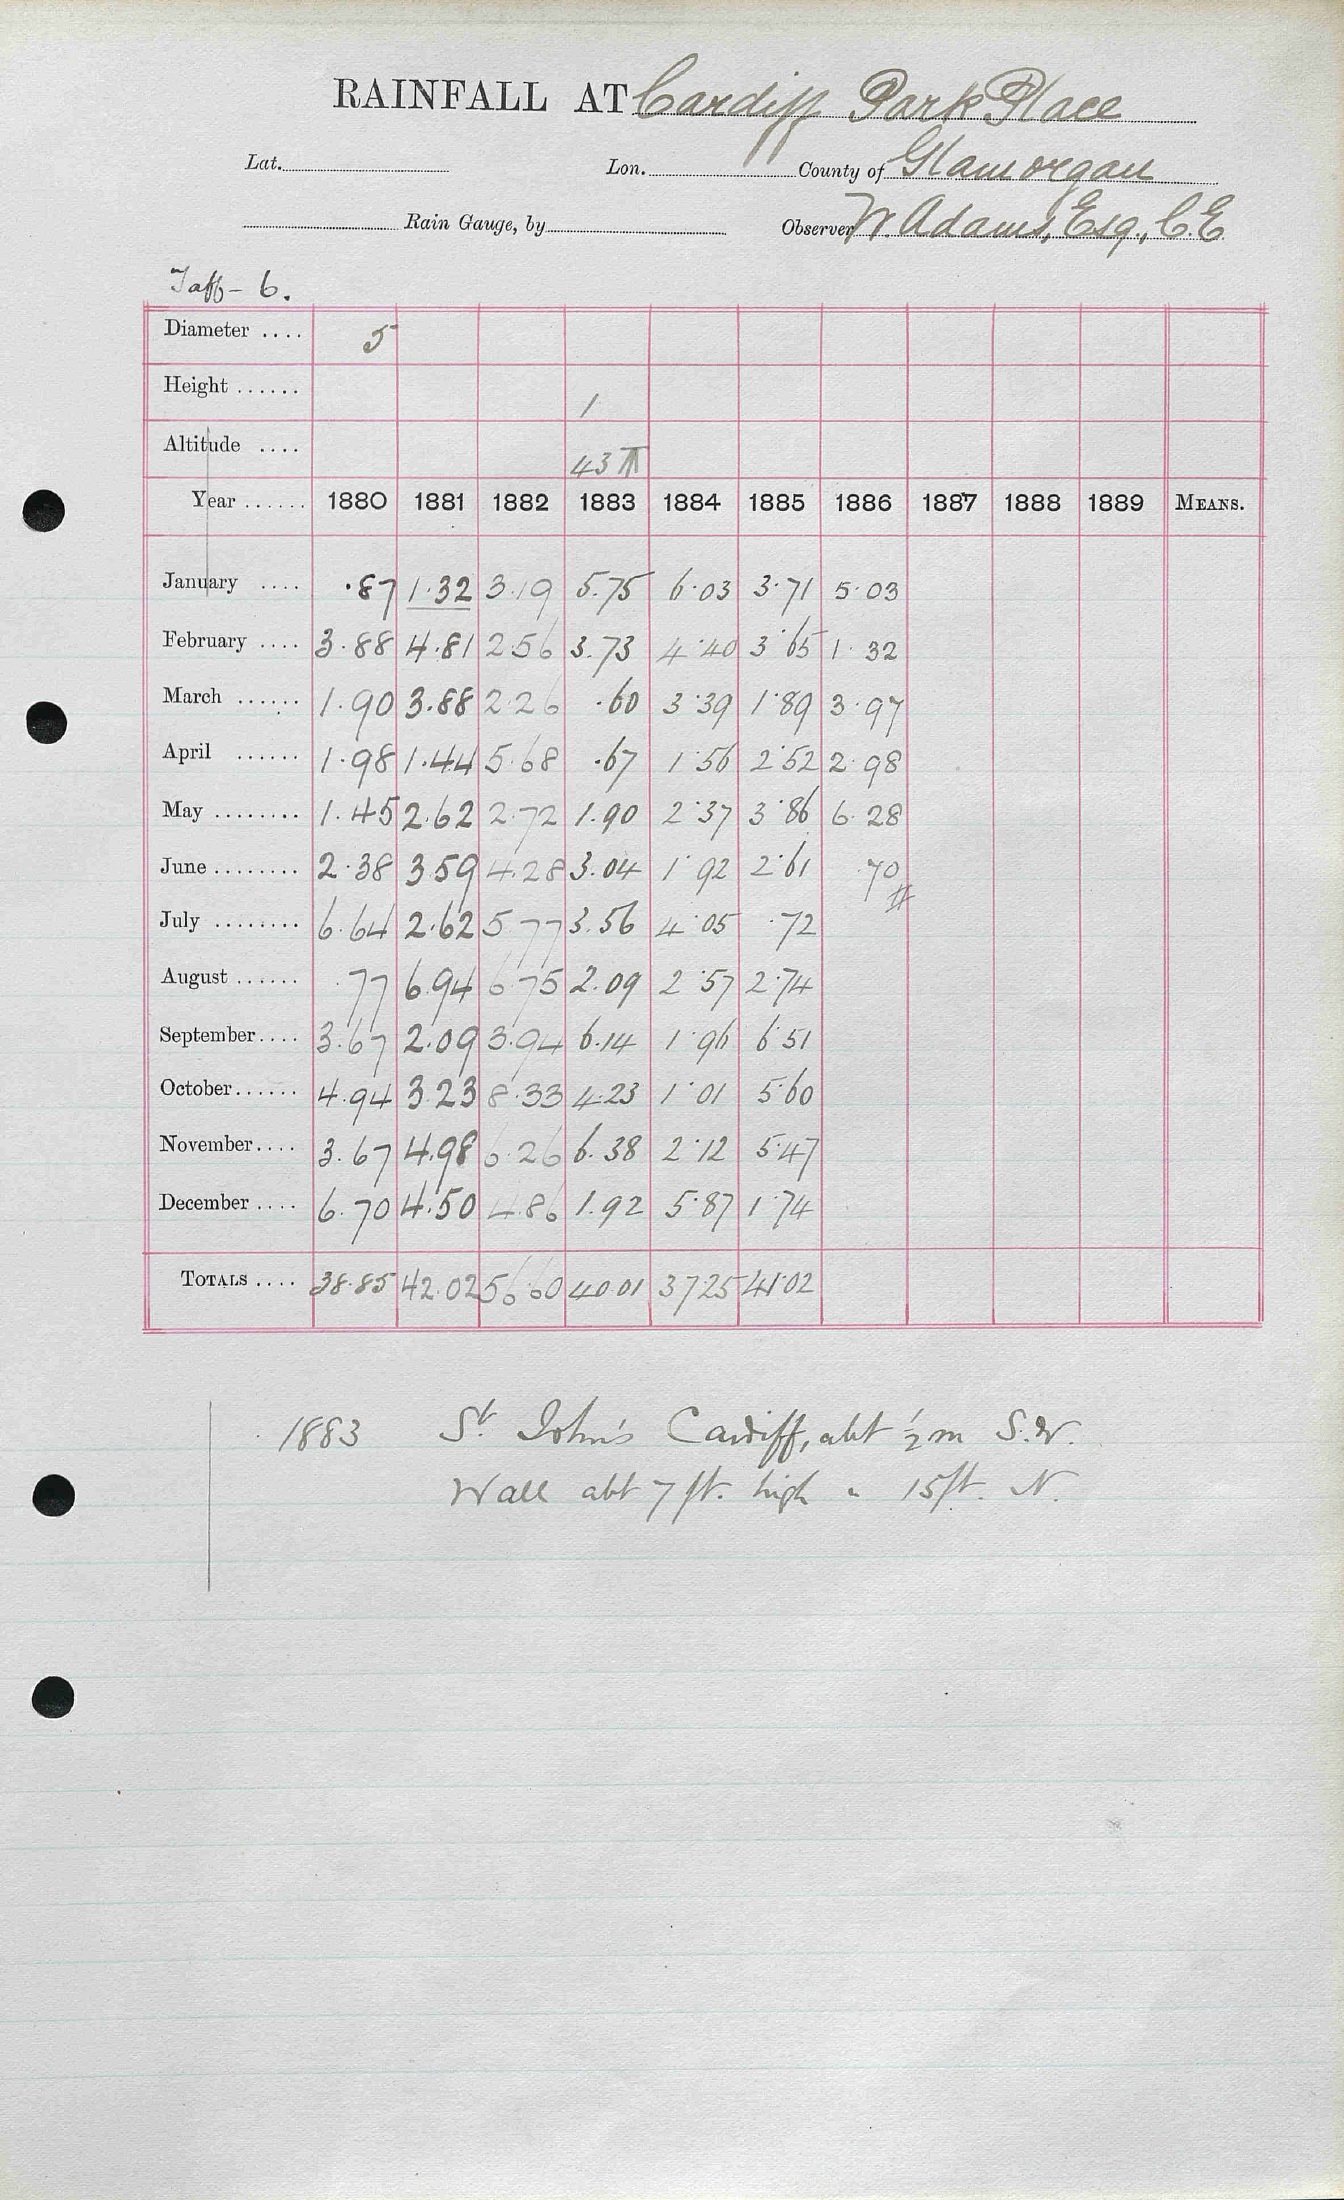 RAINFALL AT Cardiff Park Place
Lat. Lon. County of Glamorgan
Rain Gauge, by Observer W. Adams, Esq., C.E.
Taff- 6.
Diameter .... 5
Height ...... 1
Altitude .... 43
Year ...... 1880 1881 1882 1883 1884 1885 1886 1887 1888 1889 MEANS.
January .... .87 1.32 3.19 5.75 6.03 3.71 5.03
February .... 3.88 4.81 2.56 3.73 4.40 3.65 1.32
March ...... 1.90 3.88 2.26 .60 3.39 1.89 3.97
April ...... 1.98 1.44 5.68 .67 1.56 2.52 2.98
May ........ 1.45 2.62 2.72 1.90 2.37 3.86 6.28
June ........ 2.38 3.59 4.28 3.04 1.92 2.61 .70 #
July ........ 6.64 2.62 5.77 3.56 4.05 .72
August ...... .77 6.94 6.75 2.09 2.57 2.74
September.... 3.67 2.09 3.94 6.14 1.96 6.51
October...... 4.94 3.23 8.33 4.23 1.01 5.60
November.... 3.67 4.98 6.26 6.38 2.12 5.47
December .... 6.70 4.50 4.86 1.92 5.87 1.74
TOTALS .... 38.85 42.02 56.60 40.01 37.25 41.02
1883 St. John's Cardiff, abt ½ m S.W.
Wall abt 7 ft. high " 15 ft. N.